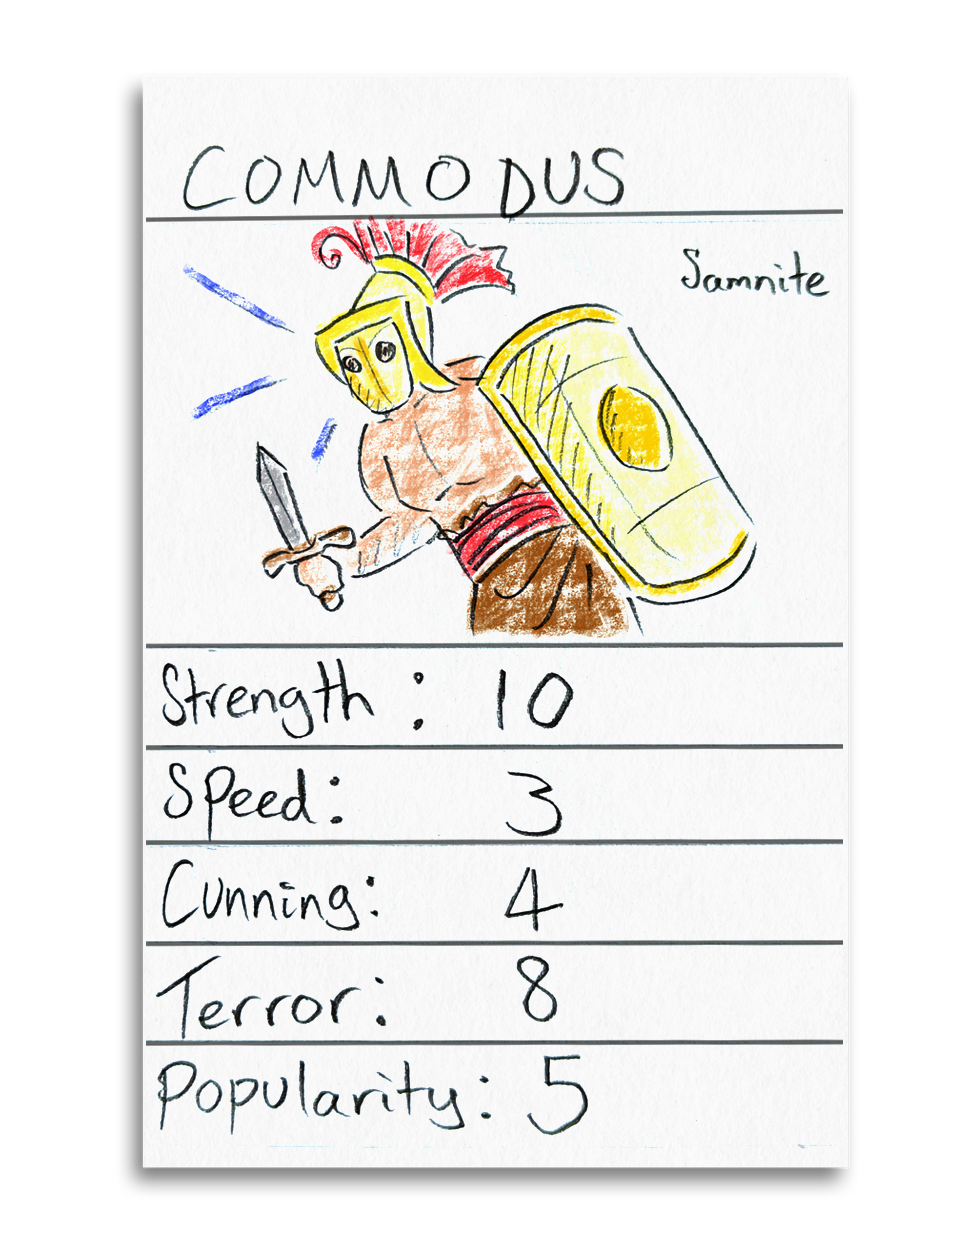 COMMODUS
Samnite
Strength: 10
Speed: 3
Cunning: 4
Terror: 8
Popularity: 5